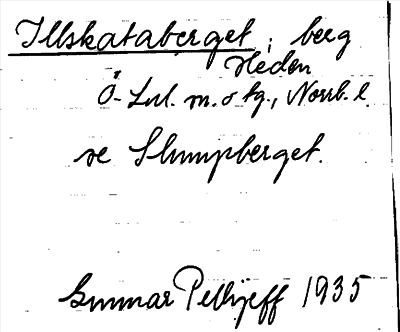 Illskataberget, berg
Heden
Ö-Lul. m. o tg., Norrb. l.
se Slumpberget.
Gunnar Pellijeff 1935